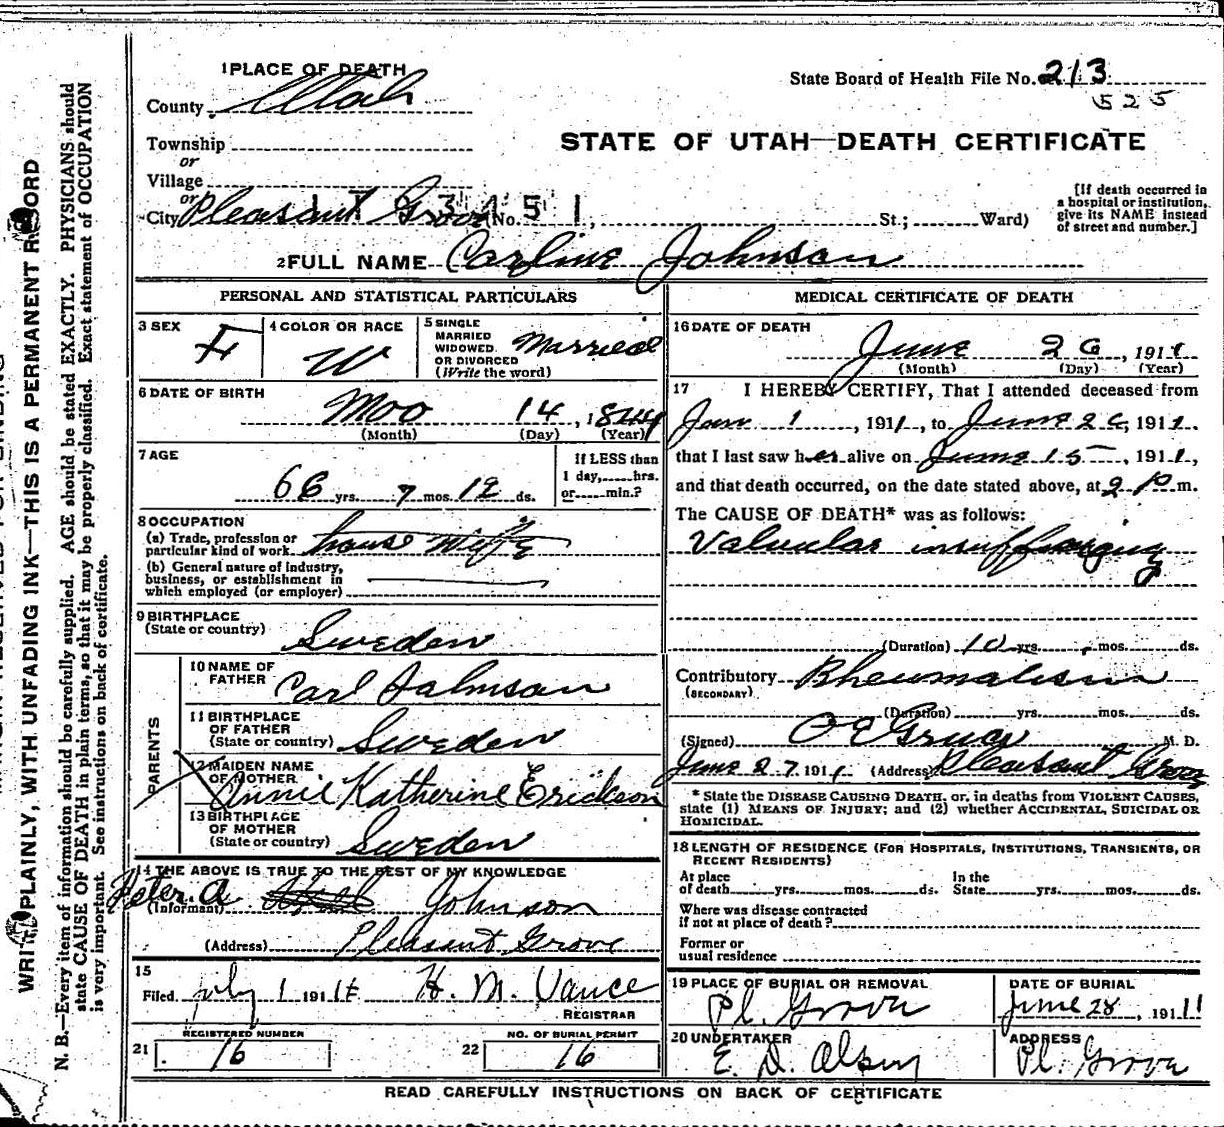 1 PLACE OF DEATH
County Utah
State Board of Health File No. 213
525
Township
or
Village
or
City Pleasant Grove (No. , St.; Ward)
STATE OF UTAH—DEATH CERTIFICATE
[If death occurred in a hospital or institution, give its NAME instead of street and number.]
2 FULL NAME Carline Johnson
PERSONAL AND STATISTICAL PARTICULARS
3 SEX F
4 COLOR OR RACE W
5 SINGLE MARRIED WIDOWED OR DIVORCED (Write the word) Married
6 DATE OF BIRTH 14, 1844
(Month) (Day) (Year)
7 AGE
66 yrs. 7 mos. 12 ds.
If LESS than 1 day, hrs. or min.?
8 OCCUPATION
(a) Trade, profession or particular kind of work house wife
(b) General nature of industry, business, or establishment in which employed (or employer)
9 BIRTHPLACE (State or country) Sweden
PARENTS
10 NAME OF FATHER Carl Johnson
11 BIRTHPLACE OF FATHER (State or country) Sweden
12 MAIDEN NAME OF MOTHER Annie Katherine Erickson
13 BIRTHPLACE OF MOTHER (State or country) Sweden
14 THE ABOVE IS TRUE TO THE BEST OF MY KNOWLEDGE
(Informant) Peter A Johnson
(Address) Pleasant Grove
15
Filed July 1 191 H. M. Vance
REGISTRAR
REGISTERED NUMBER
21 16
NO. OF BURIAL PERMIT
22 16
MEDICAL CERTIFICATE OF DEATH
16 DATE OF DEATH
June 26, 1911
(Month) (Day) (Year)
17 I HEREBY CERTIFY, That I attended deceased from
Jan 1, 1911, to June 26, 1911,
that I last saw her alive on June 15, 1911,
and that death occurred, on the date stated above, at 2 P m.
The CAUSE OF DEATH* was as follows:
Valvular insufficiency
(Duration) 10 yrs. mos. ds.
Contributory Rheumatism
(SECONDARY)
(Duration) yrs. mos. ds.
(Signed) O E Grua M. D.
June 27, 1911 (Address) Pleasant Grove
* State the DISEASE CAUSING DEATH, or, in deaths from VIOLENT CAUSES, state (1) MEANS OF INJURY; and (2) whether ACCIDENTAL, SUICIDAL OR HOMICIDAL.
18 LENGTH OF RESIDENCE (FOR HOSPITALS, INSTITUTIONS, TRANSIENTS, OR RECENT RESIDENTS)
At place of death yrs. mos. ds. In the State yrs. mos. ds.
Where was disease contracted if not at place of death?
Former or usual residence
19 PLACE OF BURIAL OR REMOVAL Pl. Grove
DATE OF BURIAL June 28, 1911
20 UNDERTAKER E. D. Olsen
ADDRESS Pl. Grove
READ CAREFULLY INSTRUCTIONS ON BACK OF CERTIFICATE
WRITE PLAINLY, WITH UNFADING INK—THIS IS A PERMANENT RECORD
N. B.—Every item of information should be carefully supplied. AGE should be stated EXACTLY. PHYSICIANS should
state CAUSE OF DEATH in plain terms, so that it may be properly classified. Exact statement of OCCUPATION
is very important. See instructions on back of certificate.